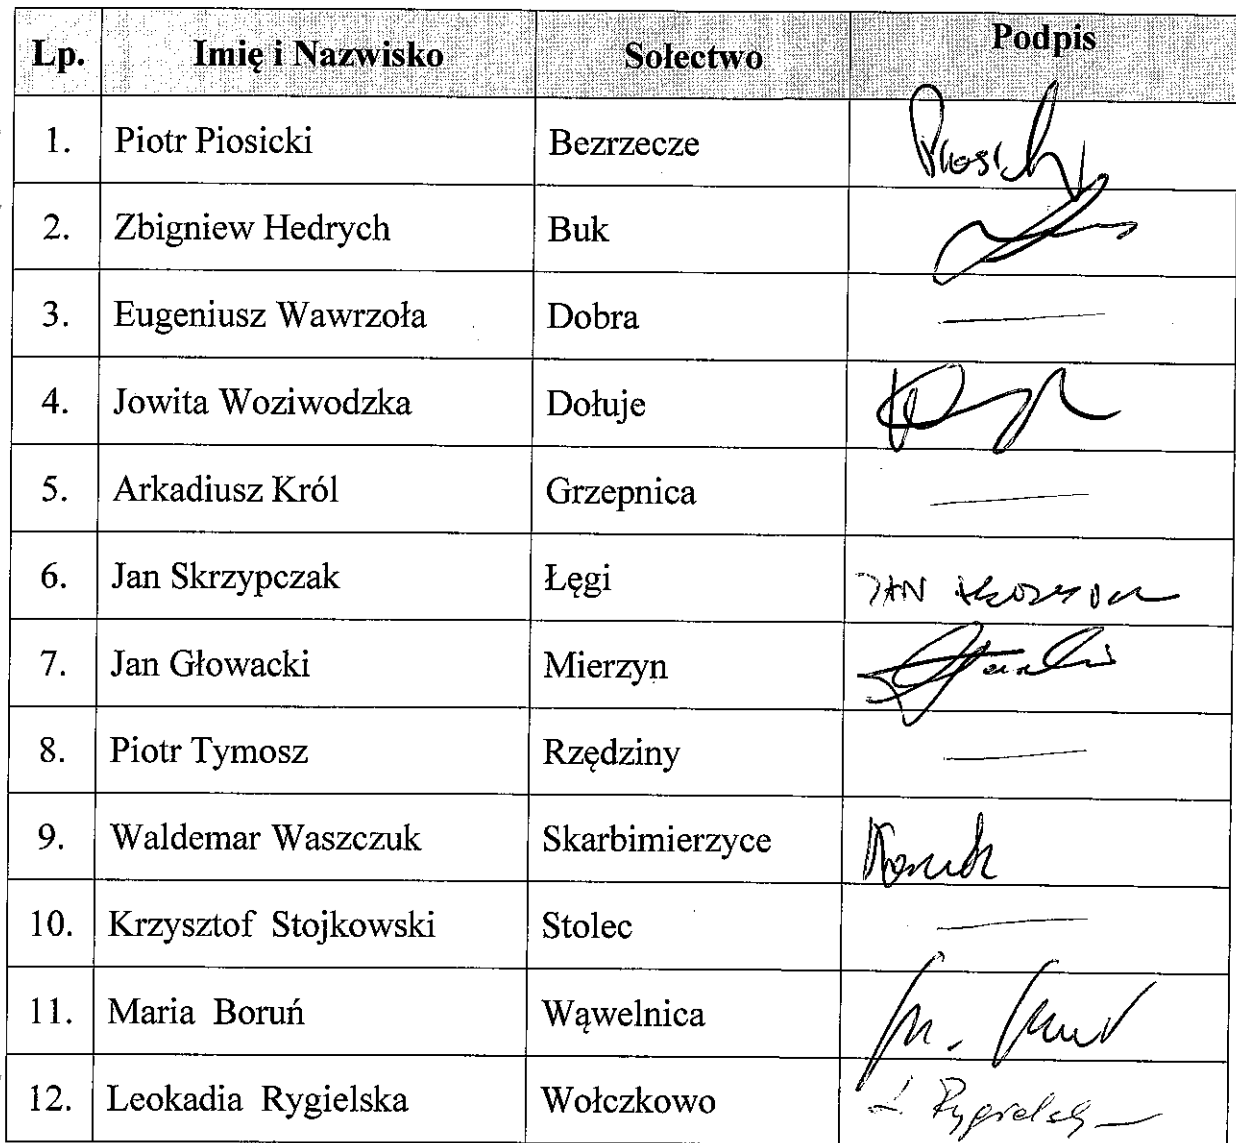 Lp. Imię i Nazwisko Sołectwo Podpis
1. Piotr Piosicki Bezrzecze
2. Zbigniew Hedrych Buk
3. Eugeniusz Wawrzoła Dobra —
4. Jowita Woziwodzka Dołuje
5. Arkadiusz Król Grzepnica —
6. Jan Skrzypczak Łęgi JAN
7. Jan Głowacki Mierzyn
8. Piotr Tymosz Rzędziny —
9. Waldemar Waszczuk Skarbimierzyce
10. Krzysztof Stojkowski Stolec —
11. Maria Boruń Wąwelnica
12. Leokadia Rygielska Wołczkowo L.